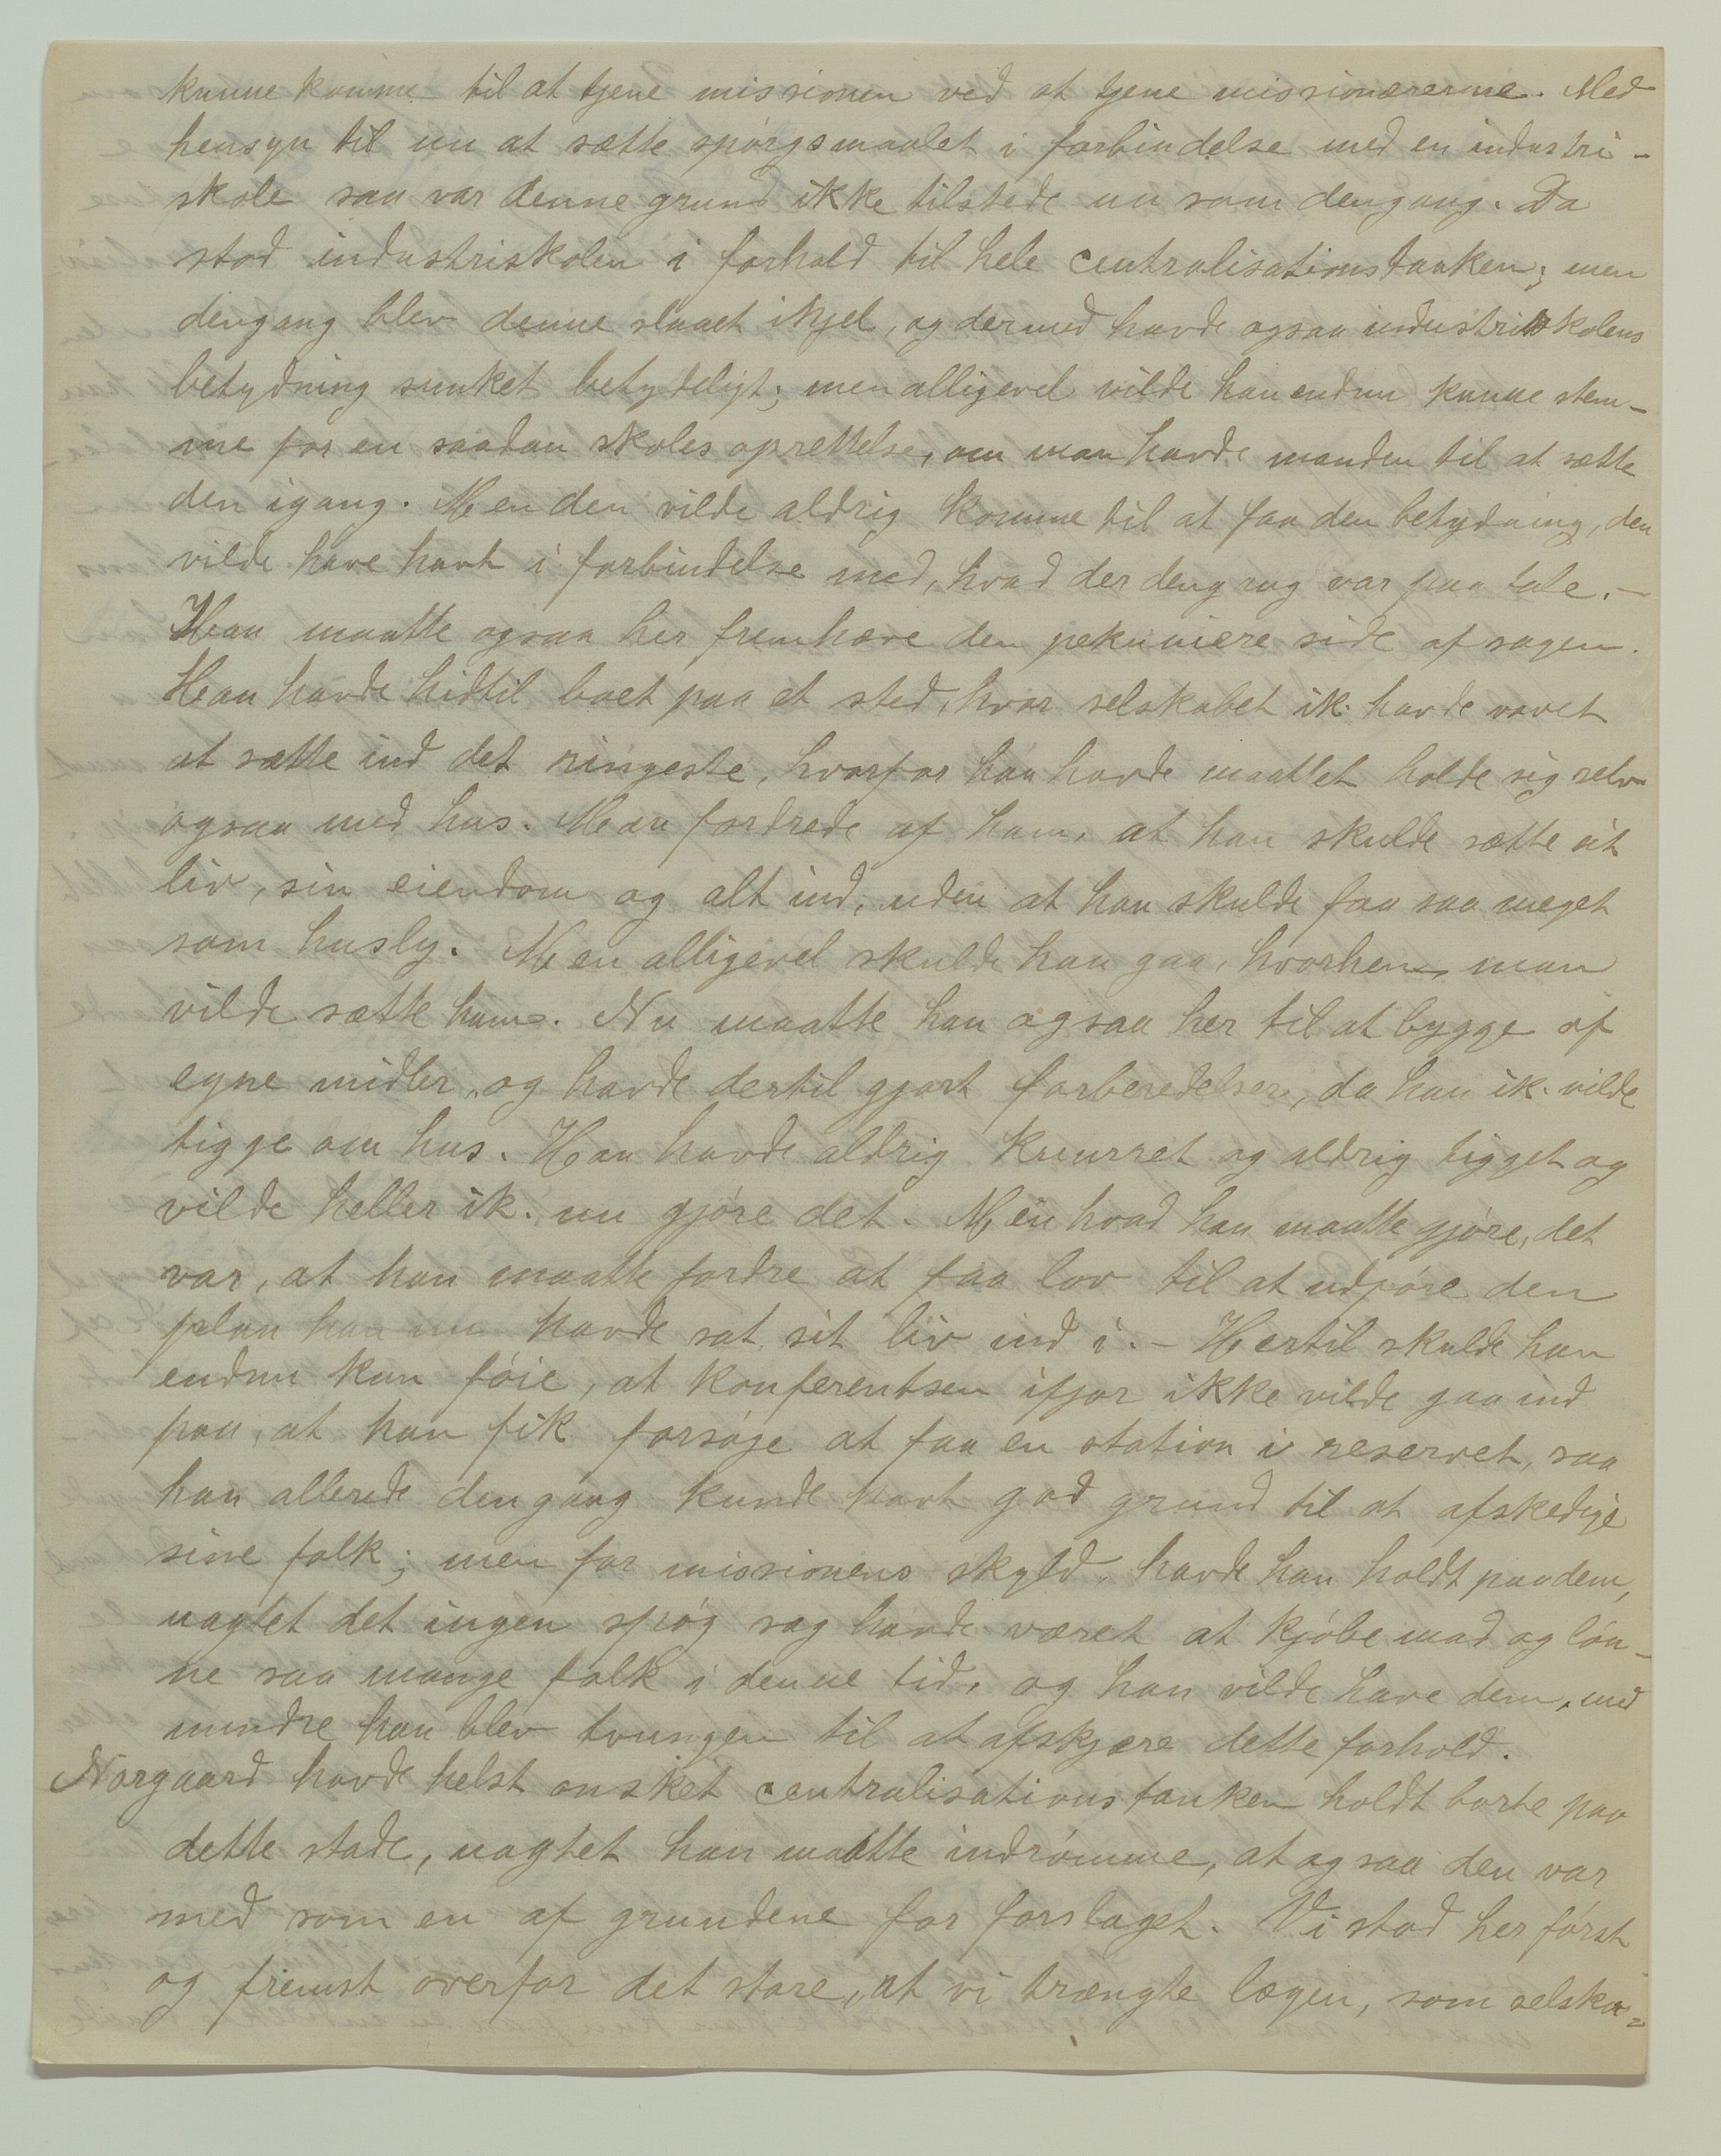 kunne komme til at tjene missionen ved at tjene missionærerne. Med
hensyn til nu at sætte spórgsmaalet i forbindelse med en industri-
skole saa var denne grund ikke tilstede nu som dengang. Da
stod industriskolen i forhold til hele centralisationstanken; men
dengang blev denne slaaet ihjel, og dermed havde ogsaa industriskolens
betydning sunket betydeligt; men alligevel vilde han endnu kunne stem-
me for en saadan skoles oprettelse, om man havde manden til at sætte
den igang. Men den vilde aldrig komme til at faa den betydning, den
vilde have havt i forbindelse med, hvad der dengang var paa tale. -
Han maatte ogsaa her fremhæve den pekuniære side af sagen.
Han havde hidtil boet paa et sted, hvor selskabet ik. havde vovet
at sætte ind det ringeste, hvorfor han havde maattet holde sig selv
ogsaa med hus. Man fordrede af ham, at han skulde sætte sit
liv, sin eiendom og alt ind, uden at han skulde faa saa meget
som husly. Men alligevel skulde han gaa, hvorhen man
vilde sætte ham. Nu maatte han ogsaa her til at bygge af
egne midler, og havde dertil gjort forberedelser, da han ik. vilde
tigge om hus. Han havde aldrig knurret og aldrig tigget og
vilde heller ik. nu gjóre det. Men hvad han maatte gjóre, det
var, at han maatte fordre at faa lov til at udfóre den
plan han nu havde sat sit liv ind i. - Hertil skulde han
endnu kun fóie, at konferentsen ifjor ikke vilde gaa ind
paa, at han fik forsóge at faa en station i reservet, saa
han allerede dengang kunde havt god grund til at afskedige
sine folk; men for missionens skyld havde han holdt paa dem,
uagtet det ingen spóg sag havde været at kjóbe mad og lón-
ne saa mange folk i denne tid, og han vilde have dem, med
mindre han blev tvungen til at afskjære dette forhold.
Norgaard havde helst ónsket centralisationstanken holdt borte paa
dette stade, uagtet han maatte indrómme, at ogsaa den var
med som en af grundene for forslaget. Vi stod her fórst
og fremst overfor det store, at vi trængte lægen, som selska-